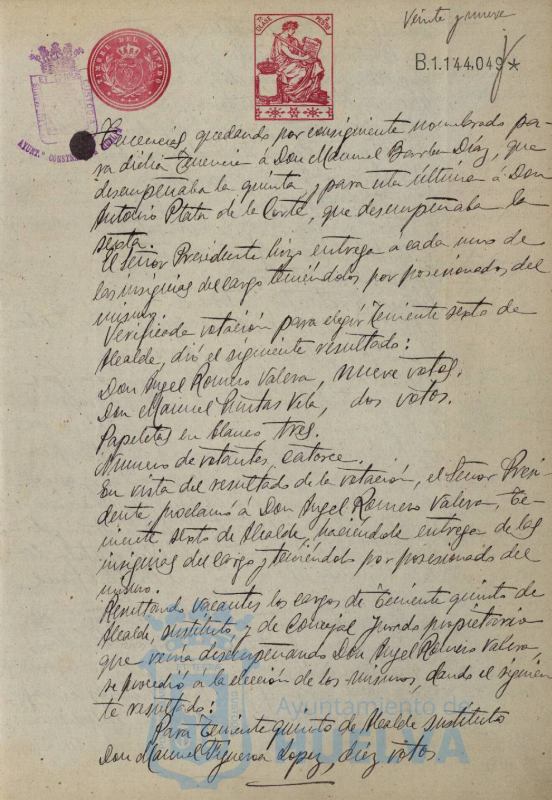 Veinte y nueve
TIMBRE DEL ESTADO
8ª CLASE
B.1.144.049 *
AYUNT.º CONSTIT
Tenencias, quedando por consiguiente nombrado pa-
ra dicha Tenencia á Don Manuel Barba Díaz, que
desempeñaba la quinta, y para esta última á Don
Antonio Plata de la Corte, que desempeñaba la
sexta.
El Señor Presidente hizo entrega a cada uno de
las insignias del cargo teniéndolos por posesionados del
mismo.
Verificada votación para elegir Teniente sexto de
Alcalde, dió el siguiente resultado:
Don Angel Romero Valera, nueve votos.
Don Manuel Vila, dos votos.
Papeletas en blanco, tres.
Número de votantes, catorce.
En vista del resultado de la votación, el Señor Presi-
dente proclamó á Don Angel Romero Valera, Te-
niente sexto de Alcalde, haciéndole entrega de las
insignias del cargo y teniéndolo por posesionado del
mismo.
Resultando vacantes los cargos de Teniente quinto de
Alcalde, sustituto, y de Concejal Jurado propietario
que venía desempeñando Don Angel Romero Valera,
se procedió á la elección de los mismos, dando el siguien-
te resultado:
Para Teniente quinto de Alcalde sustituto
Don Manuel Figueroa Lopez, diez votos
Ayuntamiento de
HUELVA